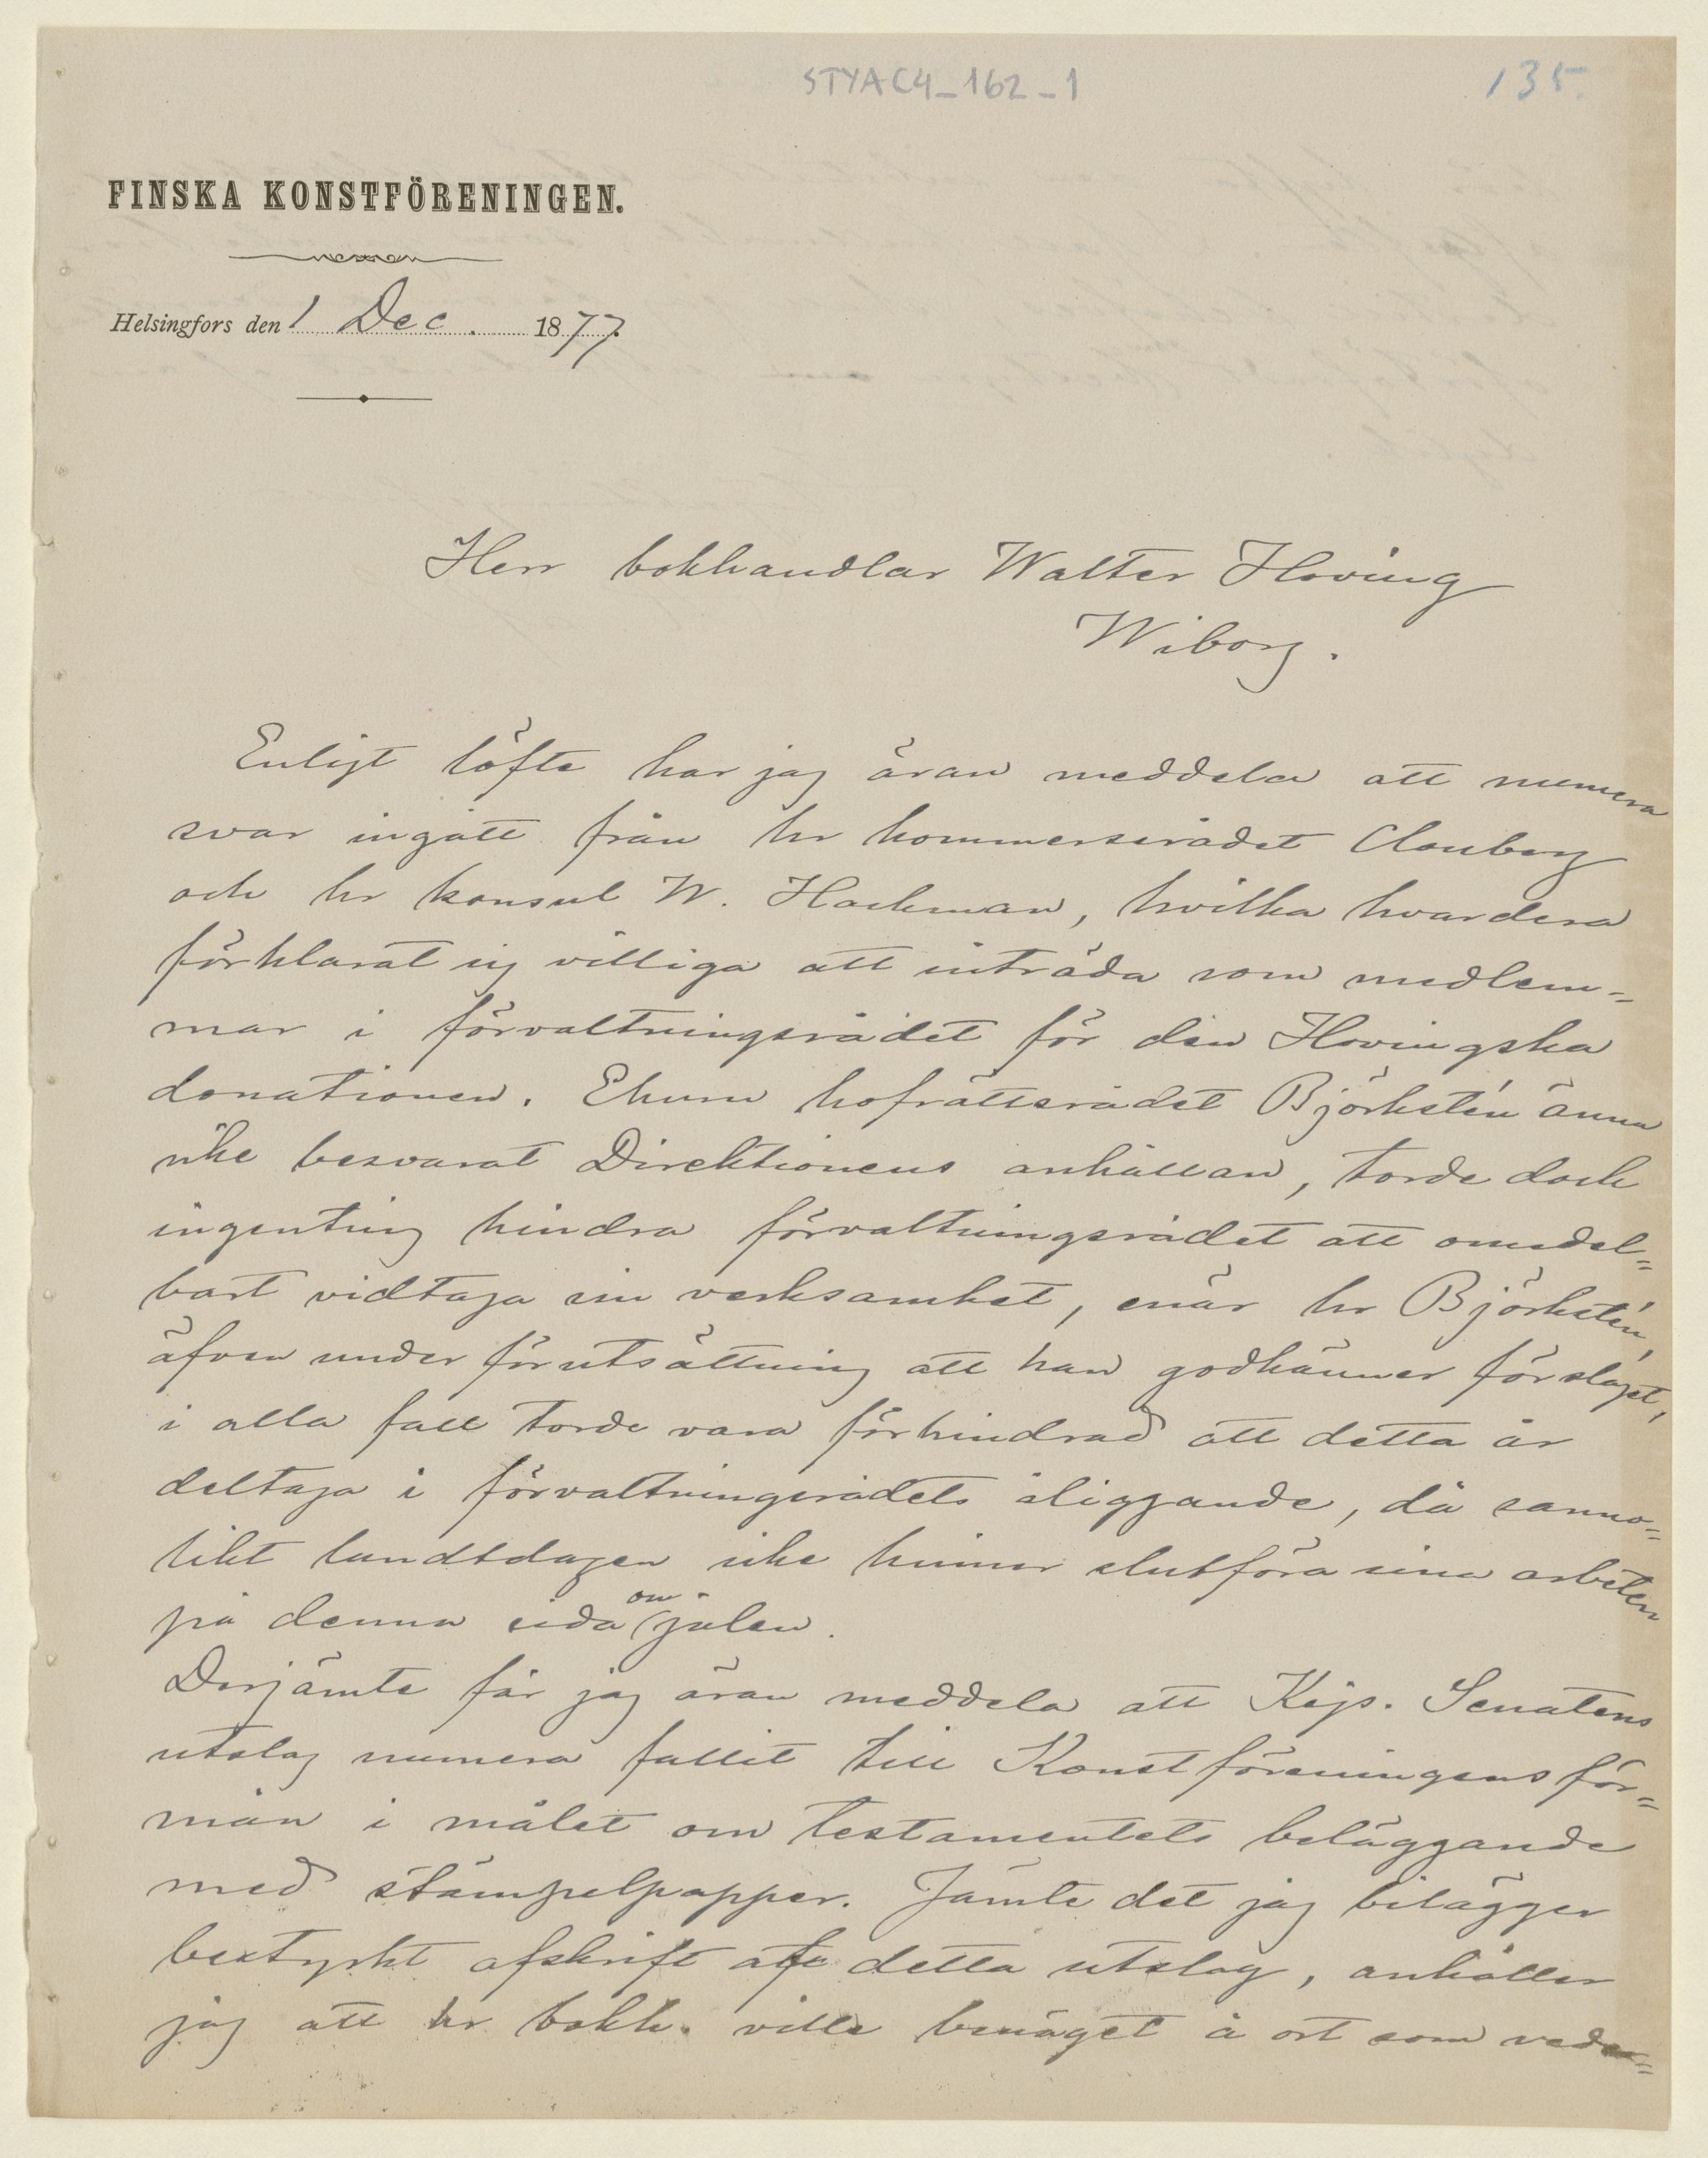 STYAC4_162_1
135.
FINSKA KONSTFÖRENINGEN.
Helsingfors den 1 Dec. 1877.
Herr bokhandlar Walter Hoving
Wiborg.
Enligt löfte har jag äran meddela att numera
svar ingått från hr kommerserådet Clouberg
och hr konsul W. Hackman, hvilka hvardera
förklarat sig villiga att inträda som medlem-
mar i förvaltningsrådet för den Hovingska
donationen. Ehuru hofrättsrådet Björkstén ännu
icke besvarat Direktionens anhållan, torde dock
ingenting hindra förvaltningsrådet att omedel=
bart vidtaga sin verksamhet, enär hr Björkstén,
äfven under förutsättning att han godkänner förslaget,
i alla fall torde vara förhindrad att detta år
deltaga i förvaltningsrådets åliggande, då sanno=
likt landtdagen icke hinner slutföra sina arbeten
på denna sida om julen.
Derjämte får jag äran meddela att Kejs. Senatens
utslag numera fallit till Konstföreningens för=
mån i målet om testamentets beläggande
med stämpelpapper. Jämte det jag bilägger
bestyrkt afskrift af detta utslag, anhåller
jag att hr bokh. ville benäget å ort som veder=